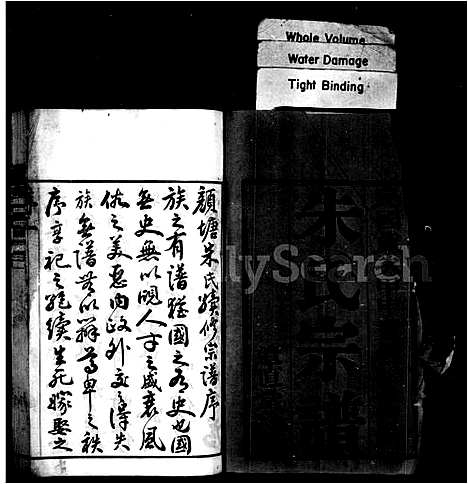 Whole Volume
Water Damage
Tight Binding
朱氏宗譜
顏塘朱氏續修宗譜序
族之有譜猶國之有史也國
無史無以覘人才之盛衰風
俗之美惡內政外交之得失
族無譜無以辨尊卑之秩
序享祀之繼續生死嫁娶之
lySearch